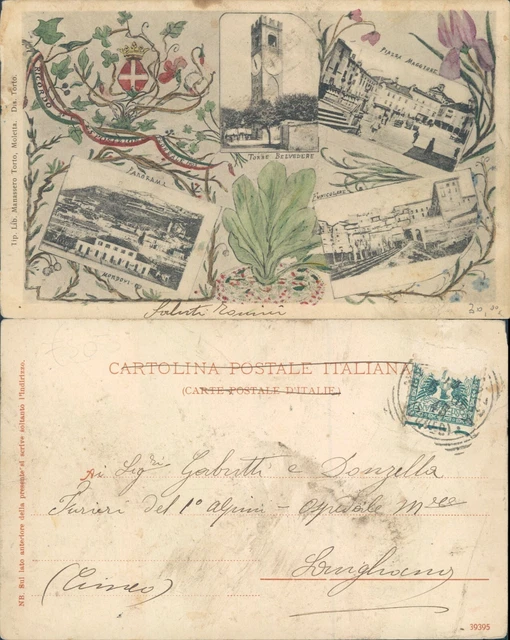 Tip. Lib. Manassero Torto, Moletta. Dia. Torto.
RICORDO
TORRE BELVEDERE
PIAZZA MAGGIORE
PANORAMA
MONDOVÌ
FUNICOLARE
Saluti
CARTOLINA POSTALE ITALIANA
(CARTE POSTALE D'ITALIE)
Ai Sigri Gabutti e Donzella
Furieri del 1º Alpini - Ospedale Mre
(Cuneo)
NB. Sul lato anteriore della presente si scrive soltanto l'indirizzo.
39395